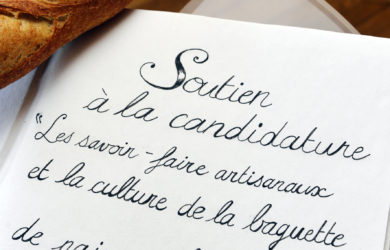 Soutien
à la candidature
"Les savoir-faire artisanaux
et la culture de la baguette
de pain